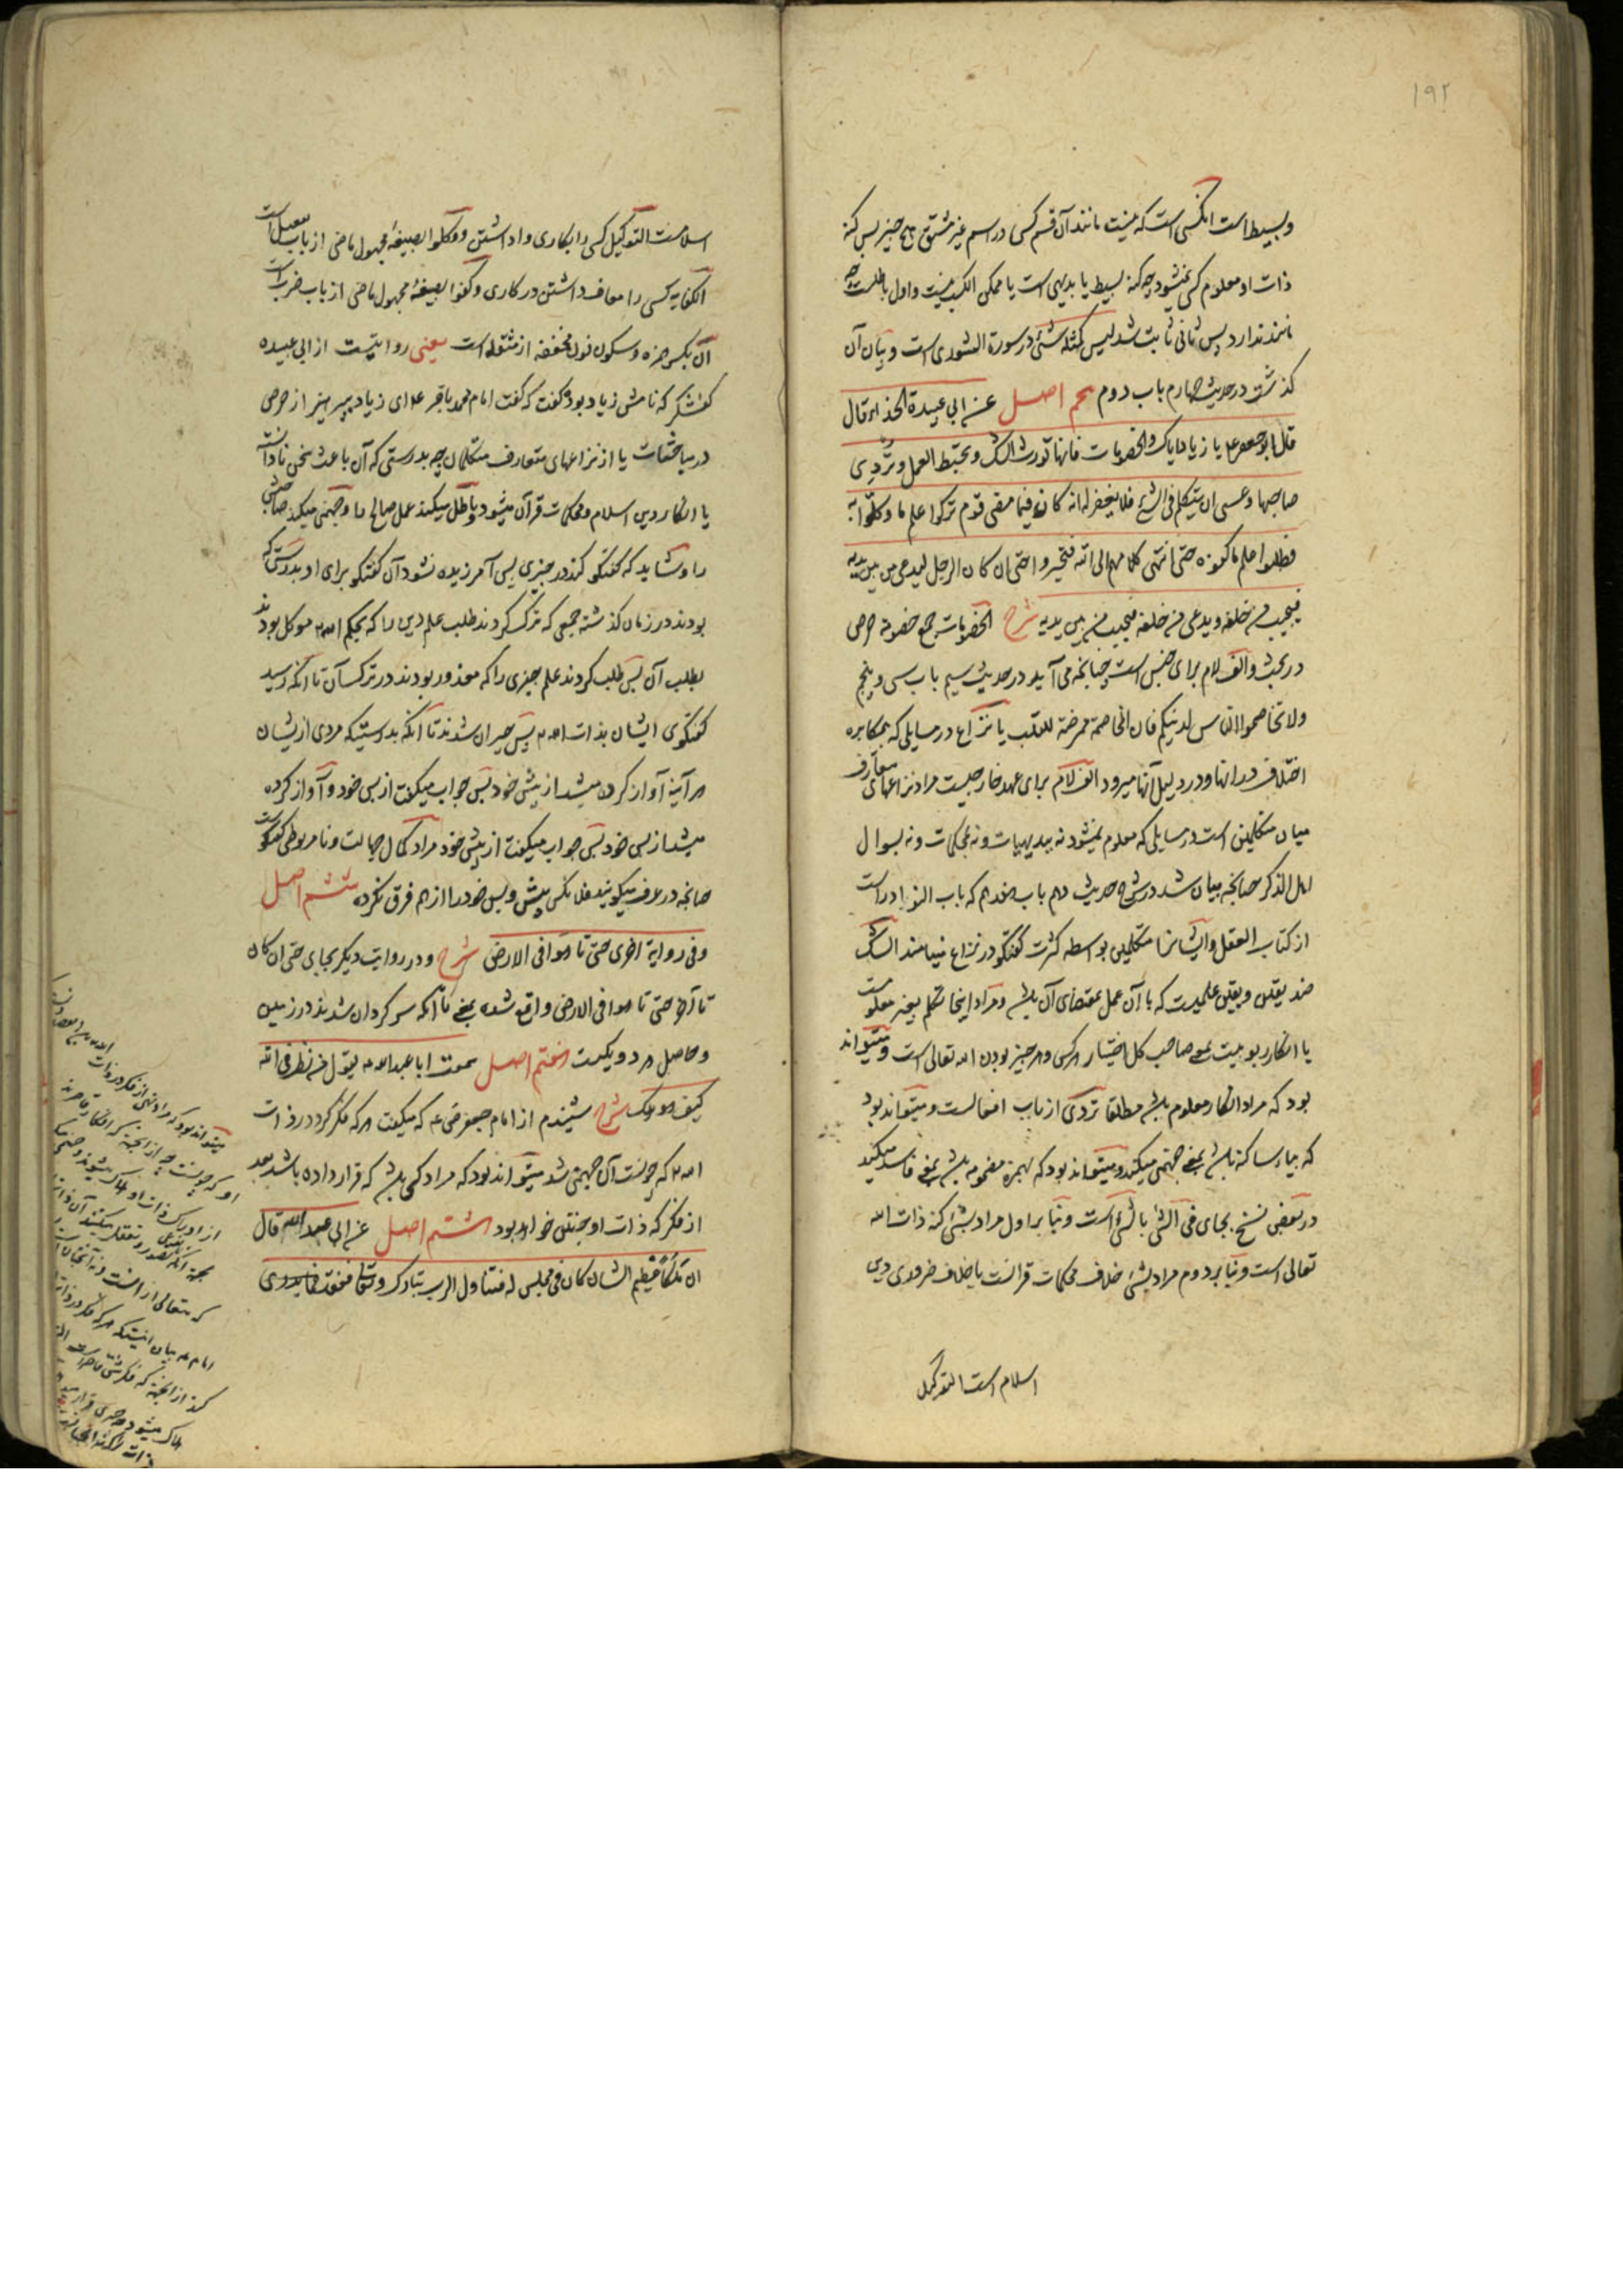 ١٩٢
وبسیط است انکسی است که نیست مانند آن قسم کسی در اسم غیر مشتق هیچ چیز پس کنه
ذات او معلوم کسی نمیشود چه کنه بسیط یا بدیهی است یا ممکن الکسب نیست و اول باطلست چه
مانند ندارد پس ثانی ثابت شد لیس کمثله شئ در سورة الشوری است و بیان آن
کذشت در حدیث چهارم باب دوم پنجم اصل عن ابی عبیدة الحذاء قال
قال ابو جعفر ع یا زیاد ایاک والخصومات فانها تورث الشک و تحبط العمل و تردی
صاحبها و عسی ان یتکلم فی الشئ فلا یغفر له انه کان فیما مضی قوم ترکوا علم ما وکلوا به
فطلبوا علم ما کفوه حتی انتهی کلامهم الی الله فتحیروا حتی ان کان الرجل لیدعی من بین یدیه
فیجیب من خلفه و یدعی من خلفه فیجیب من بین یدیه شرح الخصومات جمع خصومة حرص
در بحث و الف لام برای جنس است چنانچه می آید در حدیث سیم باب سی و پنجم
ولا تخاصموا الناس لدینکم فان المخاصمة ممرضة للقلب یا نزاع در مسایلی که بمکابره
اختلاف در انها و در دلیل آنها میرود الف لام برای عهد خارجیست مراد نزاعهای متعارف
میان متکلمین است در مسایلی که معلوم نمیشود نه ببدیهیات و نه بمحکمات و نه بسوال
اهل الذکر چنانچه بیان شد در شرح حدیث دهم باب هفدهم که باب النوادر است
از کتاب العقل و ایشانرا متکلمین بواسطه کثرت گفتگو در نزاع مینامند الشک
ضد یقین و یقین علمیست که با آن عمل بمقتضای آن باشد و مراد اینجا تکلم بغیر معلومست
یا انکار ربوبیت بمعنی صاحب کل اختیار هر کس و هر چیز بودن الله تعالی است و میتواند
بود که مراد انکار معلوم باشد مطلقا تردی از باب افعالست و میتواند بود
که بیاء ساکنه باشد بمعنی جهنمی میکند و میتواند بود که بهمزه مضمومه باشد بمعنی فاسد میکند
در بعضی نسخ بجای فی الشئ بالشئ است و بنا بر اول مراد بشئ کنه ذات الله
تعالی است و بنا بر دوم مراد بشئ خلاف محکمات قرانست یا خلاف ضروری دین
اسلام است التوکیل
اسلامست التوکیل کسی را بکاری واداشتن و وکلوا بصیغهٔ مجهول ماضی از باب تفعیل است
الکفایه کسی را معاف داشتن در کاری و کفوا بصیغهٔ مجهول ماضی از باب ضرب است
ان بکسر همزه و سکون نون مخففه از مثقله است یعنی روایتست از ابی عبیده
کفشکر که نامش زیاد بود گفت که گفت امام محمد باقر ع ای زیاد بپرهیز از حرص
در مباحثات یا از نزاعهای متعارف متکلمان چه بدرستی که آن باعث سخن نادانسته
یا انکار دین اسلام و محکمات قرآن میشود و باطل میکند عمل صالح را و جهنمی میکند صاحبش
را و شاید که گفتگو کند در چیزی پس آمرزیده نشود آن گفتگو برای او بدرستی که
بودند در زمان گذشته جمعی که ترک کردند طلب علم دین را که بحکم الله موکل بودند
بطلب آن پس طلب کردند علم چیزی را که معذور بودند در ترک آن تا آنکه رسید
گفتگوی ایشان بذات الله پس حیران شدند تا آنکه بدرستیکه مردی از ایشان
هر آینه آواز کرده میشد از پیش خود پس جواب میگفت از پس خود و آواز کرده
میشد از پس خود پس جواب میگفت از پیش خود مراد کمال جهالت و نامربوطی گفتگوست
چنانچه در عرف میگویند فلانکس پیش و پس خود را از هم فرق نکرده ششم اصل
و فی روایة اخری حتی تاهوا فی الارض شرح و در روایت دیگر بجای حتی ان کان
تا آخر حتی تاهوا فی الارض واقع شده بمعنی تا آنکه سرگردان شدند در زمین
و حاصل هر دو یکیست هفتم اصل سمعت ابا عبدالله ع یقول من نظر فی الله
کیف هو هلک شرح شنیدم از امام جعفر ع که میگفت هر که فکر کرد در ذات
الله که چونست آن جهنمی شد میتواند بود که مراد کسی باشد که قرار داده باشد بعد
از فکر که ذات او چنین خواهد بود هشتم اصل عن ابی عبدالله قال
ان ملکا عظیم الشان کان فی مجلس له فتناول الرب تبارک و تعالی ففقد فما یدری
میتواند بود که مراد نهی از فکر در ذات
او که چونست